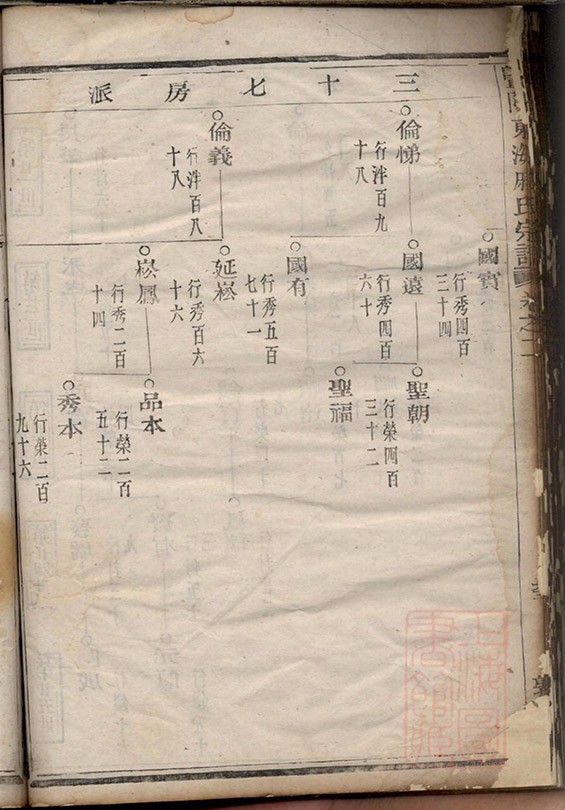 三十七房派
國賓
行秀四百
三十四
倫悌
行泮百九
十八
國遠
行秀四百
六十
聖朝
行榮四百
三十二
聖福
國有
行秀五百
七十一
倫義
行泮百八
十八
延崧
行秀百六
十六
崧鳳
行秀二百
十四
品本
行榮二百
五十二
秀本
行榮二百
九十六
東海
氏宗譜
卷之二